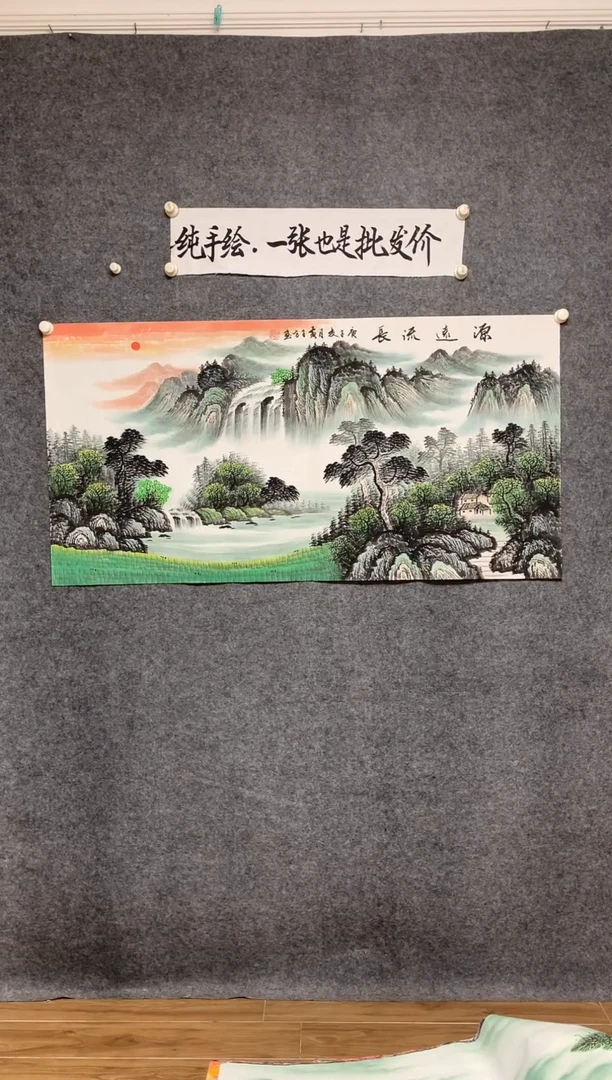 纯手绘.一张也是批发价
源遠流長 庚子